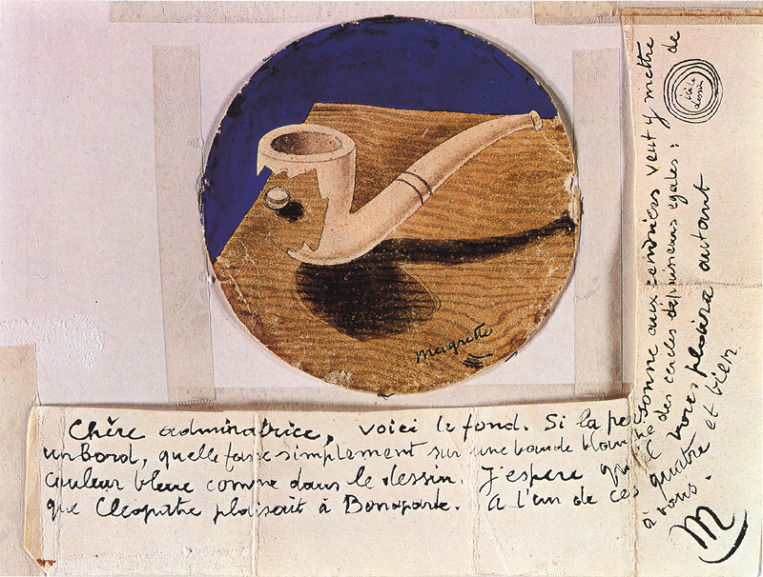 Magritte
Chère admiratrice, voici le fond. Si la personne aux cendriers veut y mettre de
un bord, quelle fasse simplement sur une bande blanche des cercles d'épaisseurs égales :
dessin
couleur bleue comme dans le dessin. J'espère vous plaira autant
que Cléopâtre plaisait à Bonaparte. A l'un de ces quatre et bien
à vous.
M